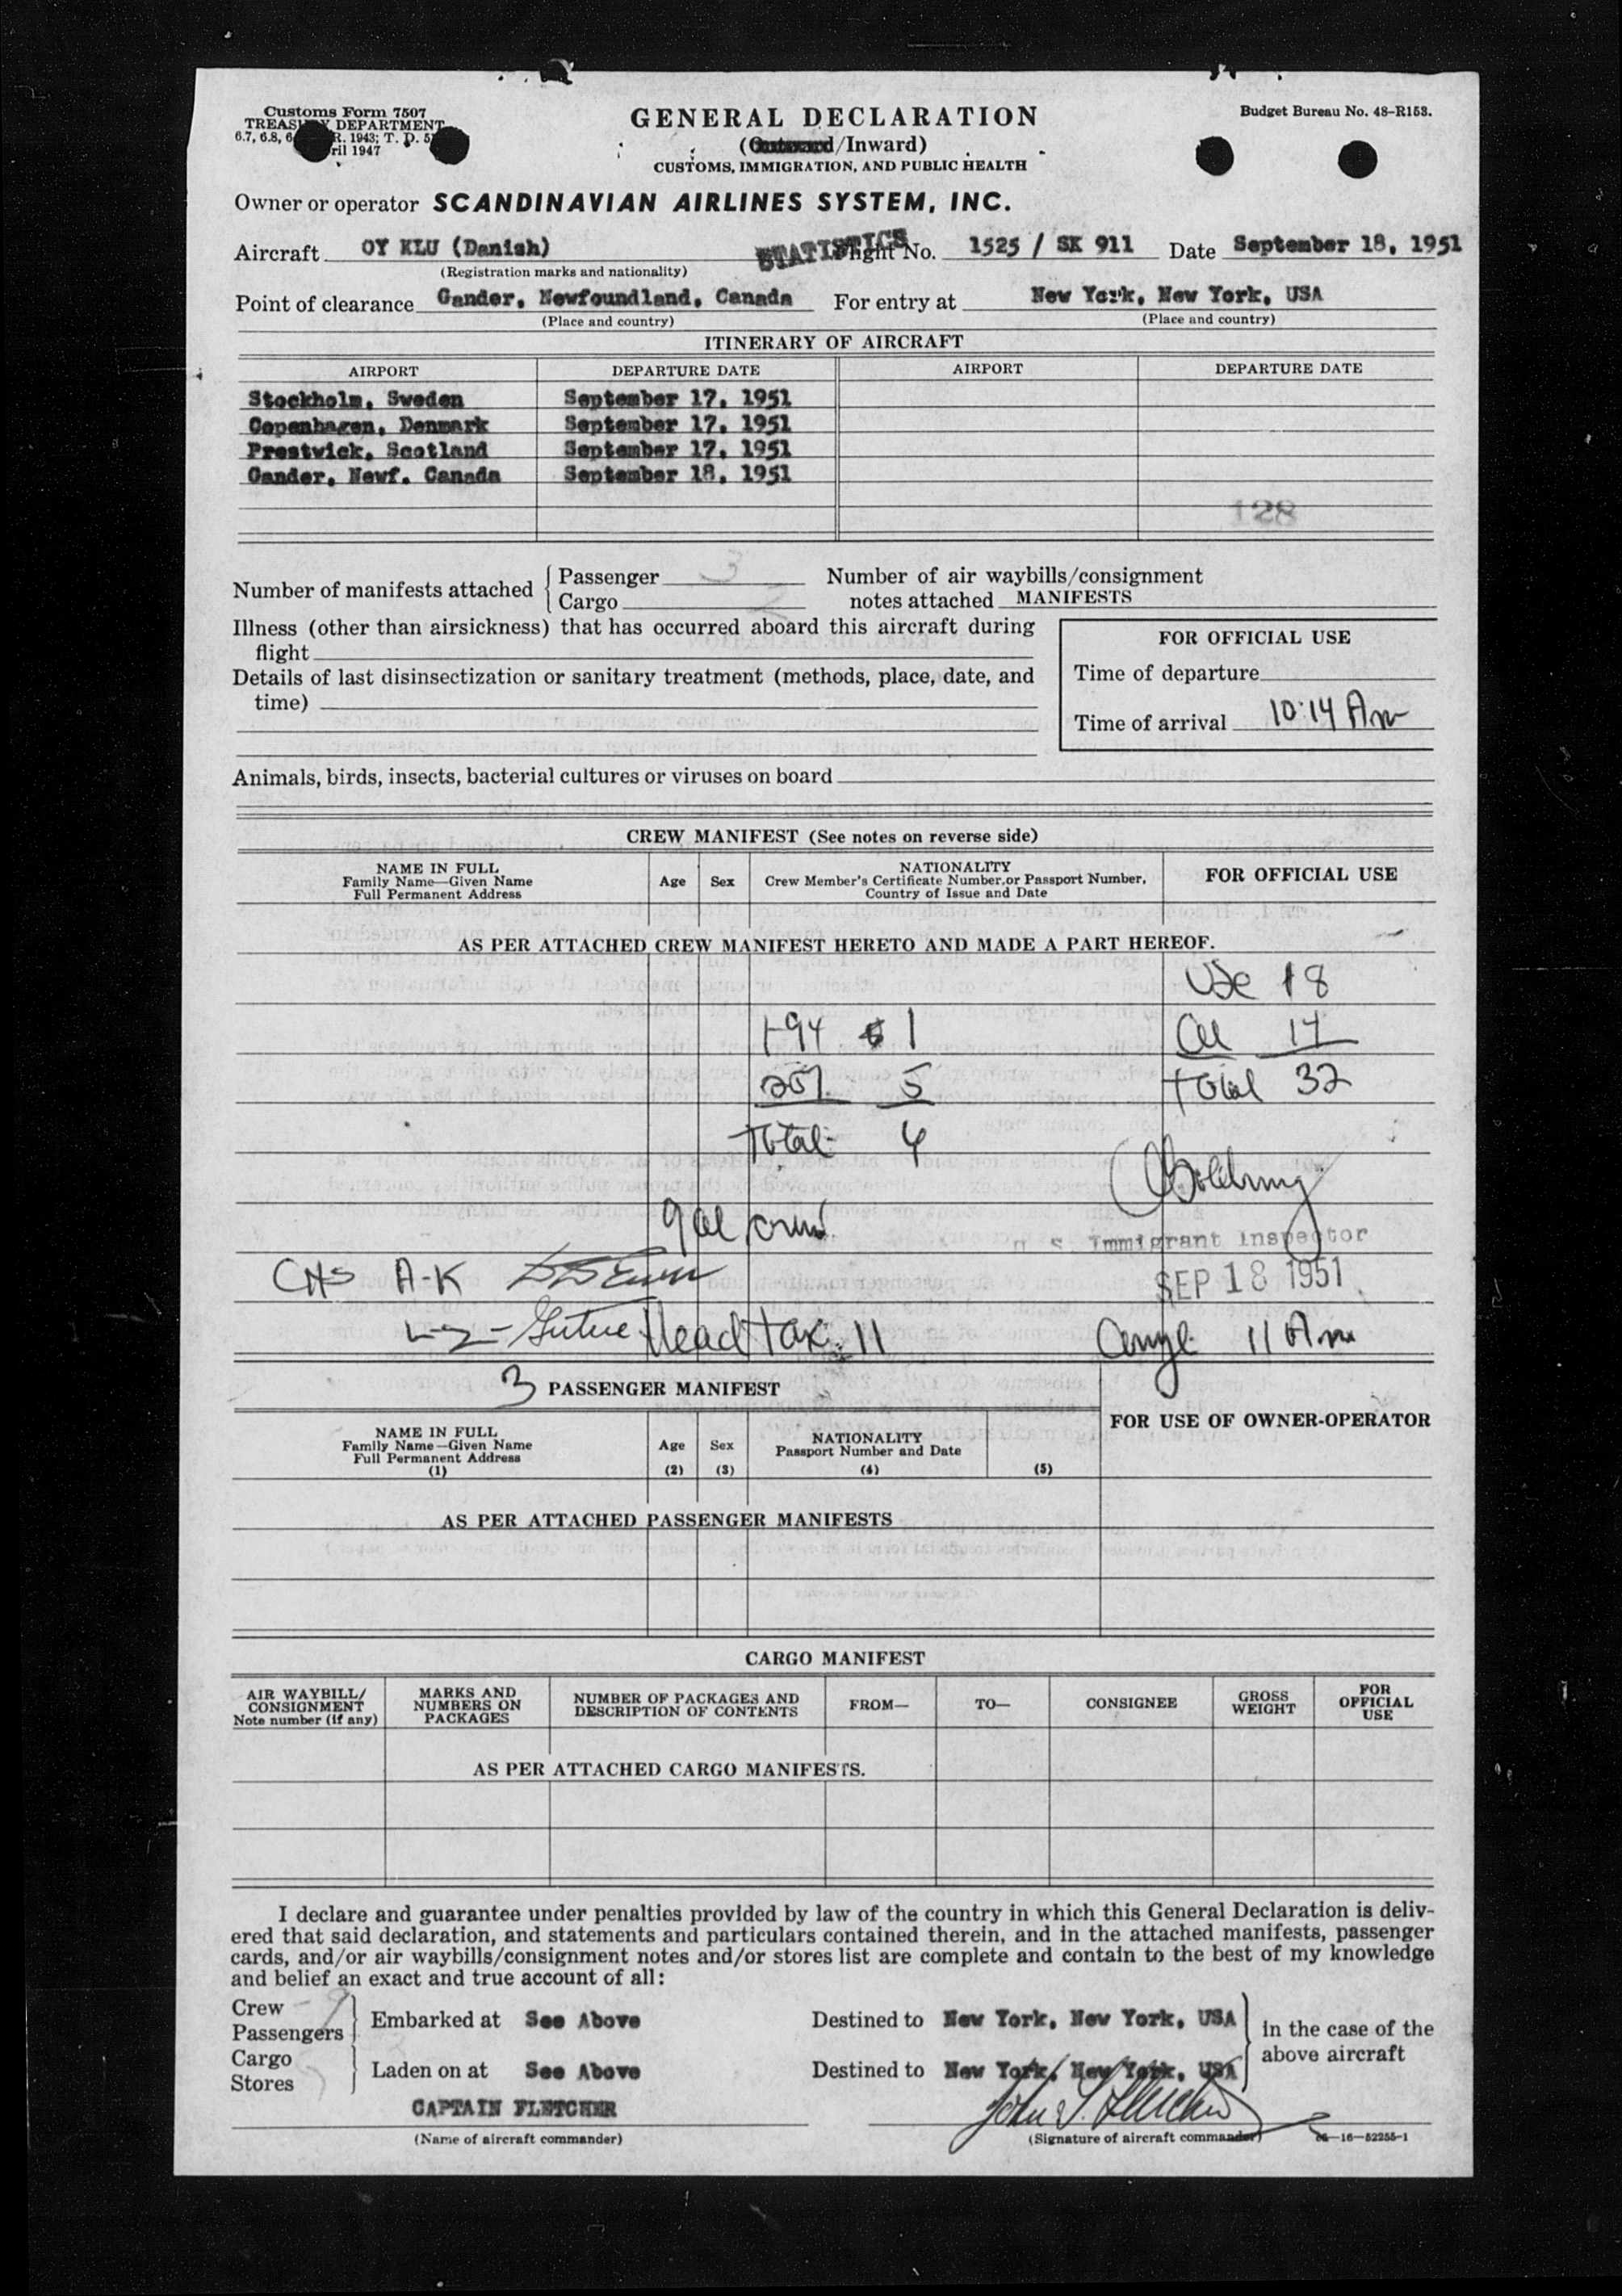 Customs Form 7507
TREASURY DEPARTMENT
6.7, 6.8, 6 R. 1943; T. D. 5
ril 1947
GENERAL DECLARATION
(Outward/Inward)
CUSTOMS, IMMIGRATION, AND PUBLIC HEALTH
Budget Bureau No. 48-R153.
Owner or operator SCANDINAVIAN AIRLINES SYSTEM, INC.
Aircraft OY KLU (Danish) STATISTICS Flight No. 1525 / SK 911 Date September 18, 1951
(Registration marks and nationality)
Point of clearance Gander, Newfoundland, Canada For entry at New York, New York, USA
(Place and country) (Place and country)
ITINERARY OF AIRCRAFT
AIRPORT DEPARTURE DATE AIRPORT DEPARTURE DATE
Stockholm, Sweden September 17, 1951
Copenhagen, Denmark September 17, 1951
Prestwick, Scotland September 17, 1951
Gander, Newf. Canada September 18, 1951
128
Number of manifests attached Passenger 3 Number of air waybills/consignment
Cargo notes attached MANIFESTS
Illness (other than airsickness) that has occurred aboard this aircraft during
flight
Details of last disinsectization or sanitary treatment (methods, place, date, and
time)
FOR OFFICIAL USE
Time of departure
Time of arrival 10:14 Am
Animals, birds, insects, bacterial cultures or viruses on board
CREW MANIFEST (See notes on reverse side)
NAME IN FULL
Family Name—Given Name
Full Permanent Address
Age Sex
NATIONALITY
Crew Member's Certificate Number, or Passport Number,
Country of Issue and Date
FOR OFFICIAL USE
AS PER ATTACHED CREW MANIFEST HERETO AND MADE A PART HEREOF.
USC 18
I-94 1
257 5
Total 32
Total
U. S. Immigrant Inspector
CHS A-K
SEP 18 1951
L-Z- Head tax 11
11 Am
3 PASSENGER MANIFEST
FOR USE OF OWNER-OPERATOR
NAME IN FULL
Family Name—Given Name
Full Permanent Address
(1)
Age
(2)
Sex
(3)
NATIONALITY
Passport Number and Date
(4)
(5)
AS PER ATTACHED PASSENGER MANIFESTS
CARGO MANIFEST
AIR WAYBILL/
CONSIGNMENT
Note number (if any)
MARKS AND
NUMBERS ON
PACKAGES
NUMBER OF PACKAGES AND
DESCRIPTION OF CONTENTS
FROM—
TO—
CONSIGNEE
GROSS
WEIGHT
FOR
OFFICIAL
USE
AS PER ATTACHED CARGO MANIFESTS.
I declare and guarantee under penalties provided by law of the country in which this General Declaration is deliv-
ered that said declaration, and statements and particulars contained therein, and in the attached manifests, passenger
cards, and/or air waybills/consignment notes and/or stores list are complete and contain to the best of my knowledge
and belief an exact and true account of all:
Crew - 9
Passengers Embarked at See Above Destined to New York, New York, USA in the case of the
Cargo above aircraft
Stores Laden on at See Above Destined to New York, New York, USA
CAPTAIN FLETCHER John S. Fletcher
(Name of aircraft commander) (Signature of aircraft commander) 16—52255-1